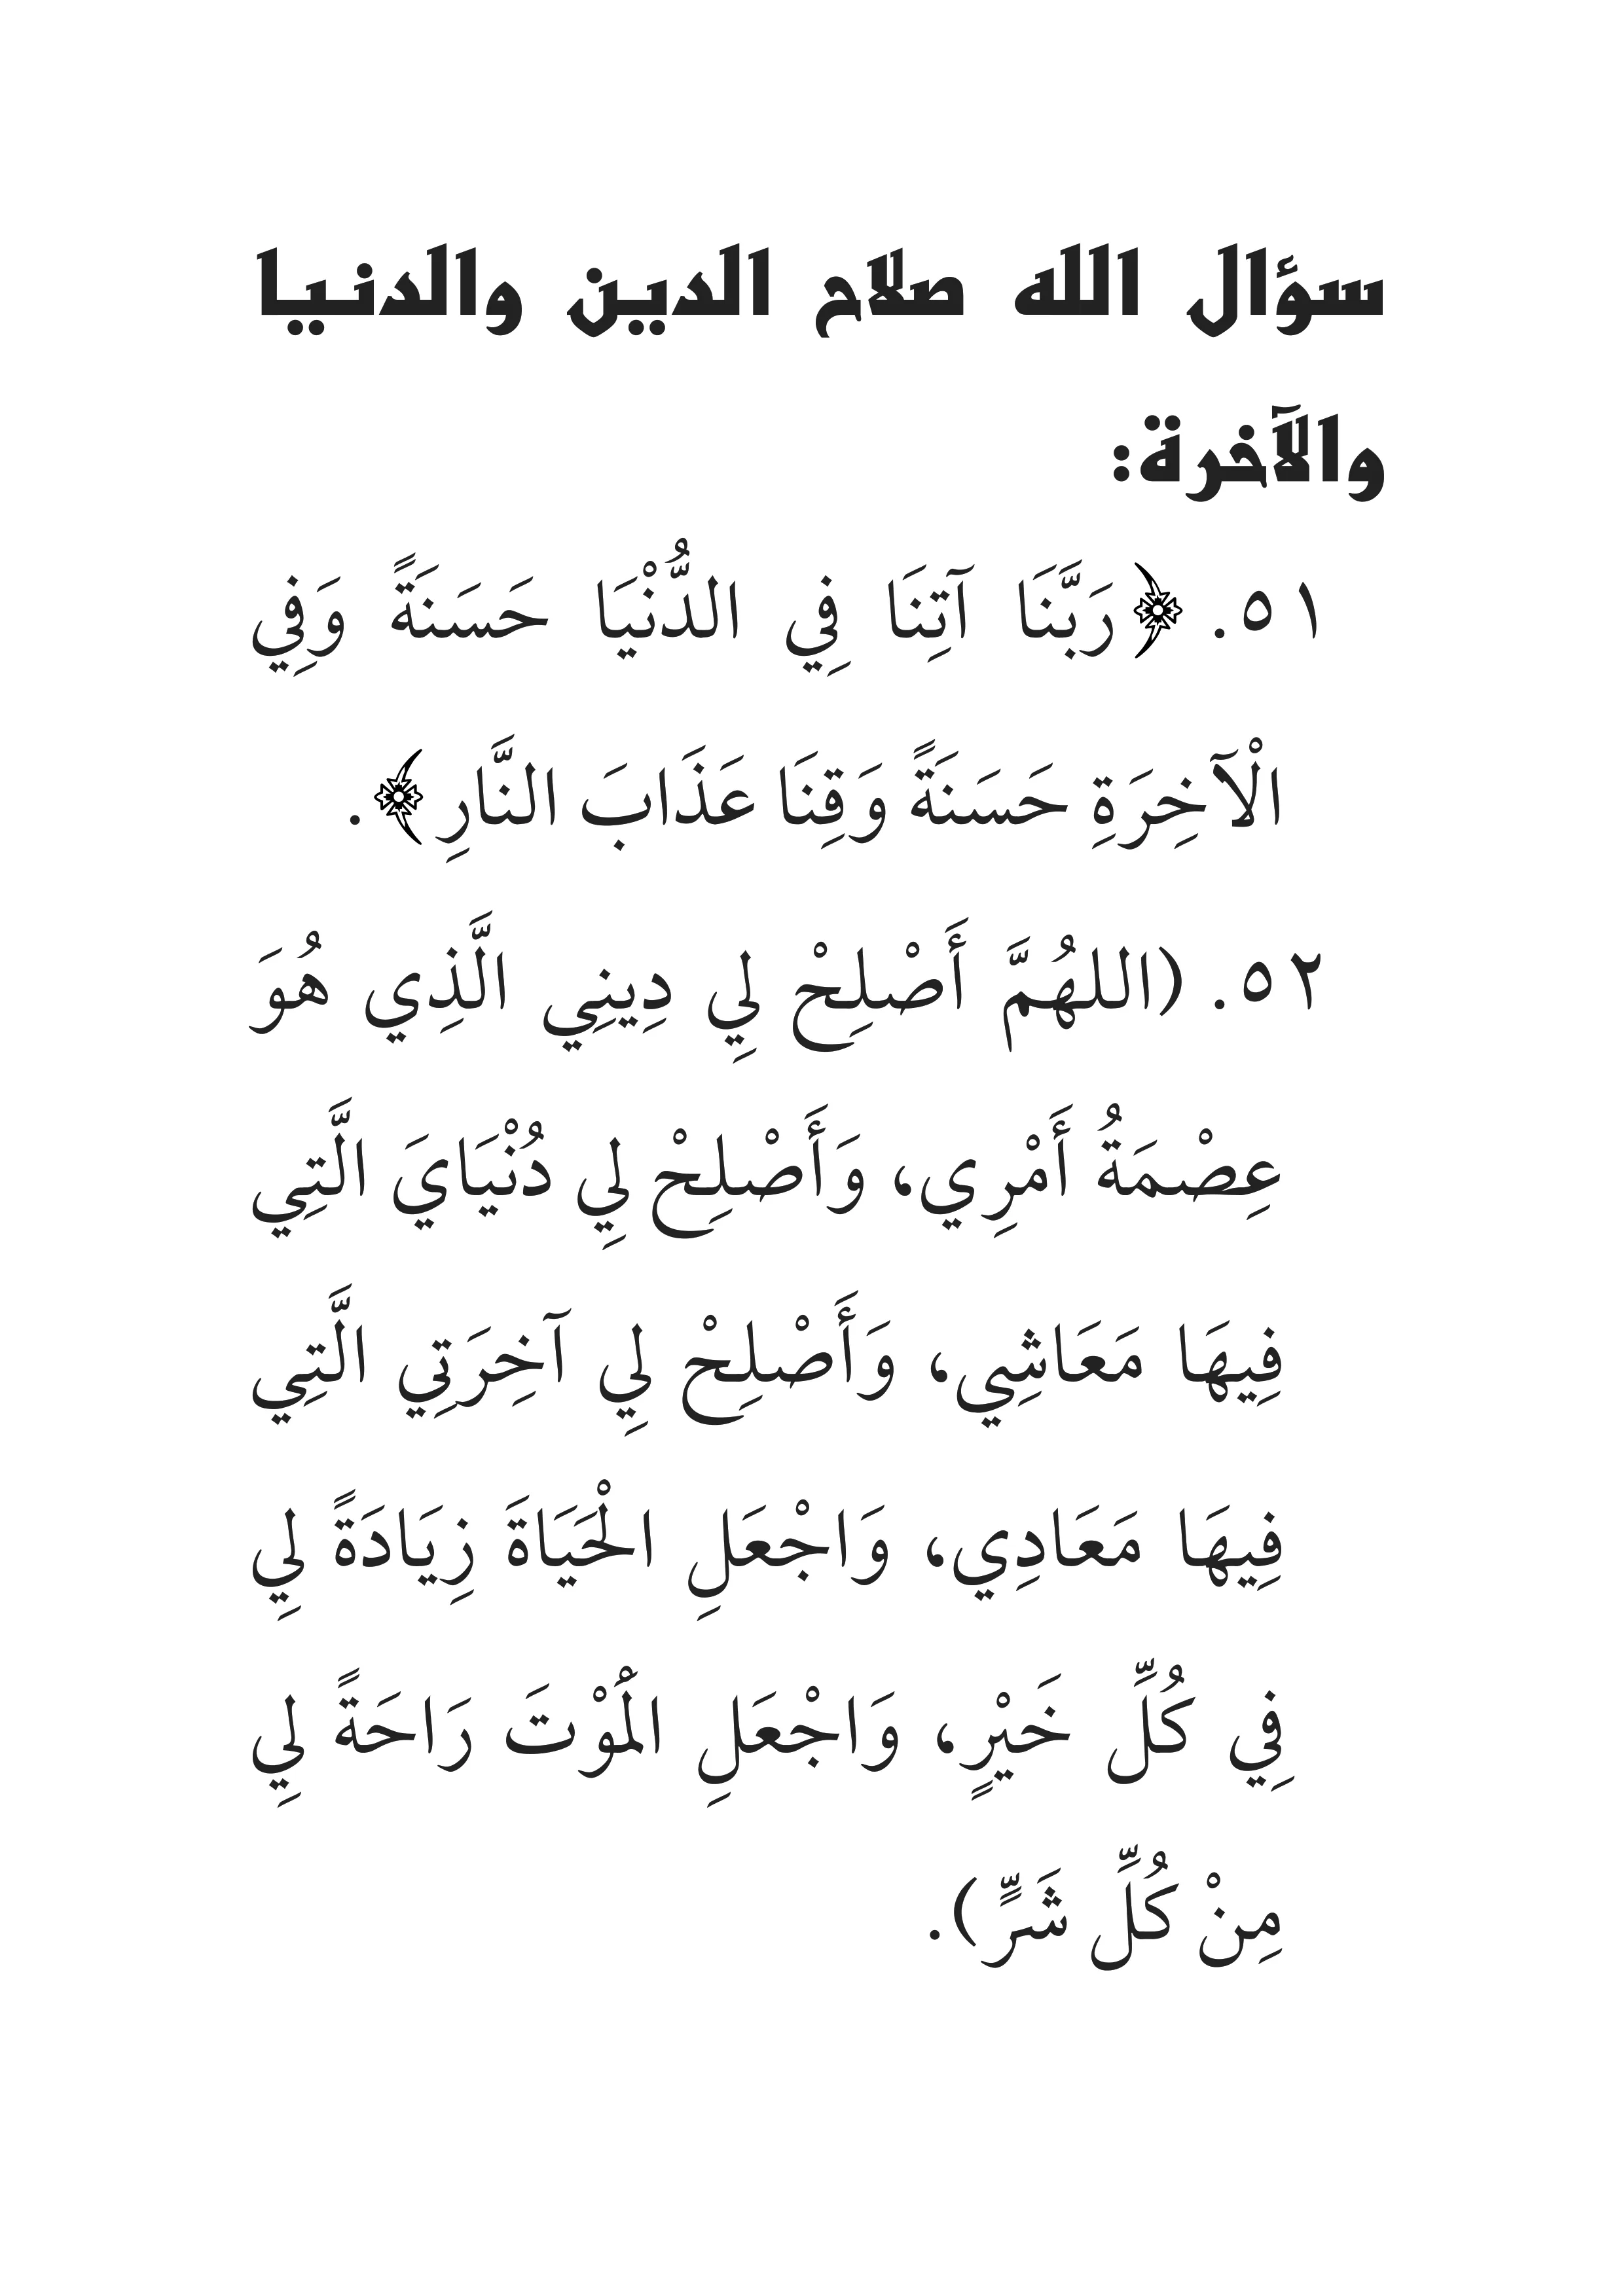 سؤال الله صلاح الدين والدنيا
والآخرة:
٥١. ﴿رَبَّنَا آتِنَا فِي الدُّنْيَا حَسَنَةً وَفِي
الْآخِرَةِ حَسَنَةً وَقِنَا عَذَابَ النَّارِ﴾.
٥٢. (اللهُمَّ أَصْلِحْ لِي دِينِي الَّذِي هُوَ
عِصْمَةُ أَمْرِي، وَأَصْلِحْ لِي دُنْيَايَ الَّتِي
فِيهَا مَعَاشِي، وَأَصْلِحْ لِي آخِرَتِي الَّتِي
فِيهَا مَعَادِي، وَاجْعَلِ الْحَيَاةَ زِيَادَةً لِي
فِي كُلِّ خَيْرٍ، وَاجْعَلِ الْمَوْتَ رَاحَةً لِي
مِنْ كُلِّ شَرٍّ).